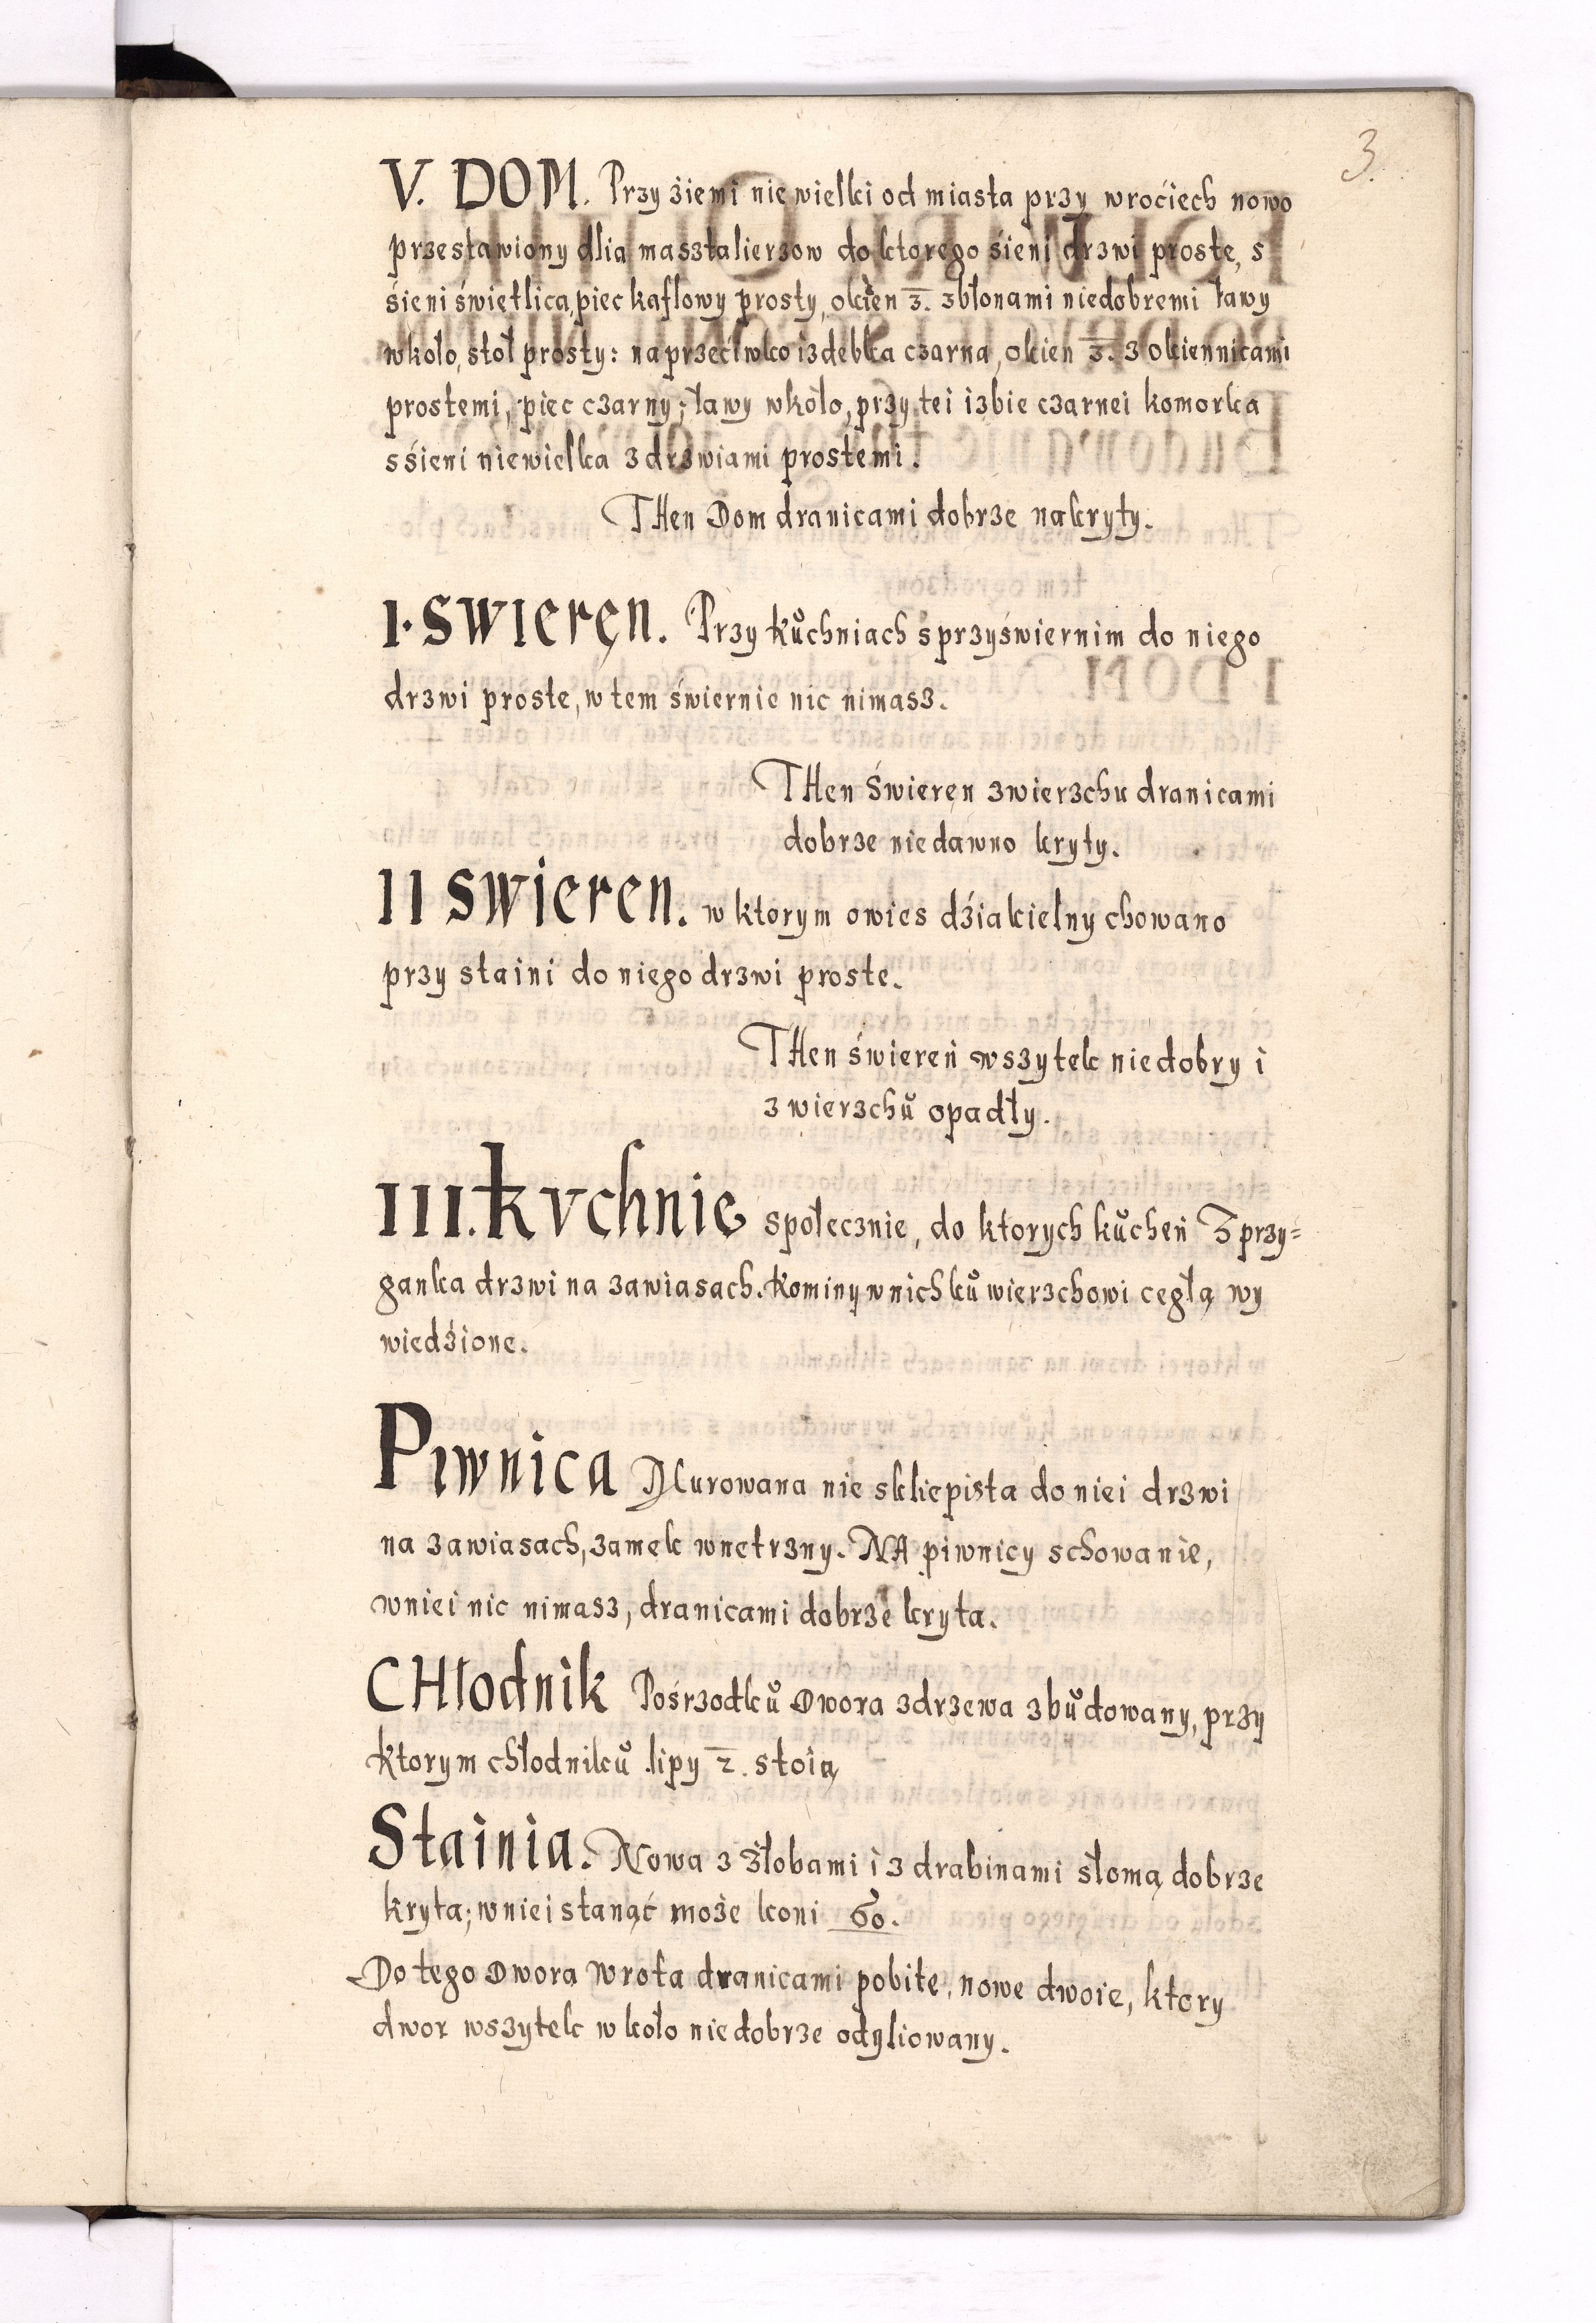 3.
V. DOM. Przy źiemi nie wielki od miasta przy wroćiech nowo
przestawiony dlia masztalierzow do ktorego śieni drzwi proste, s
śieni świetlica, piec kaflowy prosty, okien 3. zbłonami niedobremi ławy
wkoło, stoł prosty: naprzećiwko izdebka czarna, okien 3. z okiennicami
prostemi, piec czarny; ławy wkoło, przy tei izbie czarnei komorka
s śieni niewielka z drzwiami prostemi.
THen Dom dranicami dobrze nakryty.
I. SWIeren. Przy kůchniach s przyświernim do niego
drzwi proste, w tem świernie nic nimasz.
THen Świeren zwierzchu dranicami
dobrze niedawno kryty.
II SWieren. w ktorym owies dźiakielny chowano
przy staini do niego drzwi proste.
THen świereń wszytek niedobry i
z wierzchů opadły.
III. kvchnie społecznie, do ktorych kůcheń z przy=
ganka drzwi na zawiasach. Kominy w nich ků wierzchowi cegłą wy
wiedźione.
PIwnica Murowana nie skliepista do niei drzwi
na zawiasach, zamek wnetrzny. NA piwnicy schowanie,
wniei nic nimasz, dranicami dobrze kryta.
CHłodnik Pośrzodků Dwora zdrzewa zbůdowany, przy
ktorym chłodniků lipy 2. stoią
Stainia. Nowa z żłobami i z drabinami słomą dobrze
kryta; wniei stanąć może koni 60.
Do tego Dwora wrota dranicami pobite, nowe dwoie, ktory
dwor wszytek wkoło niedobrze odyliowany.